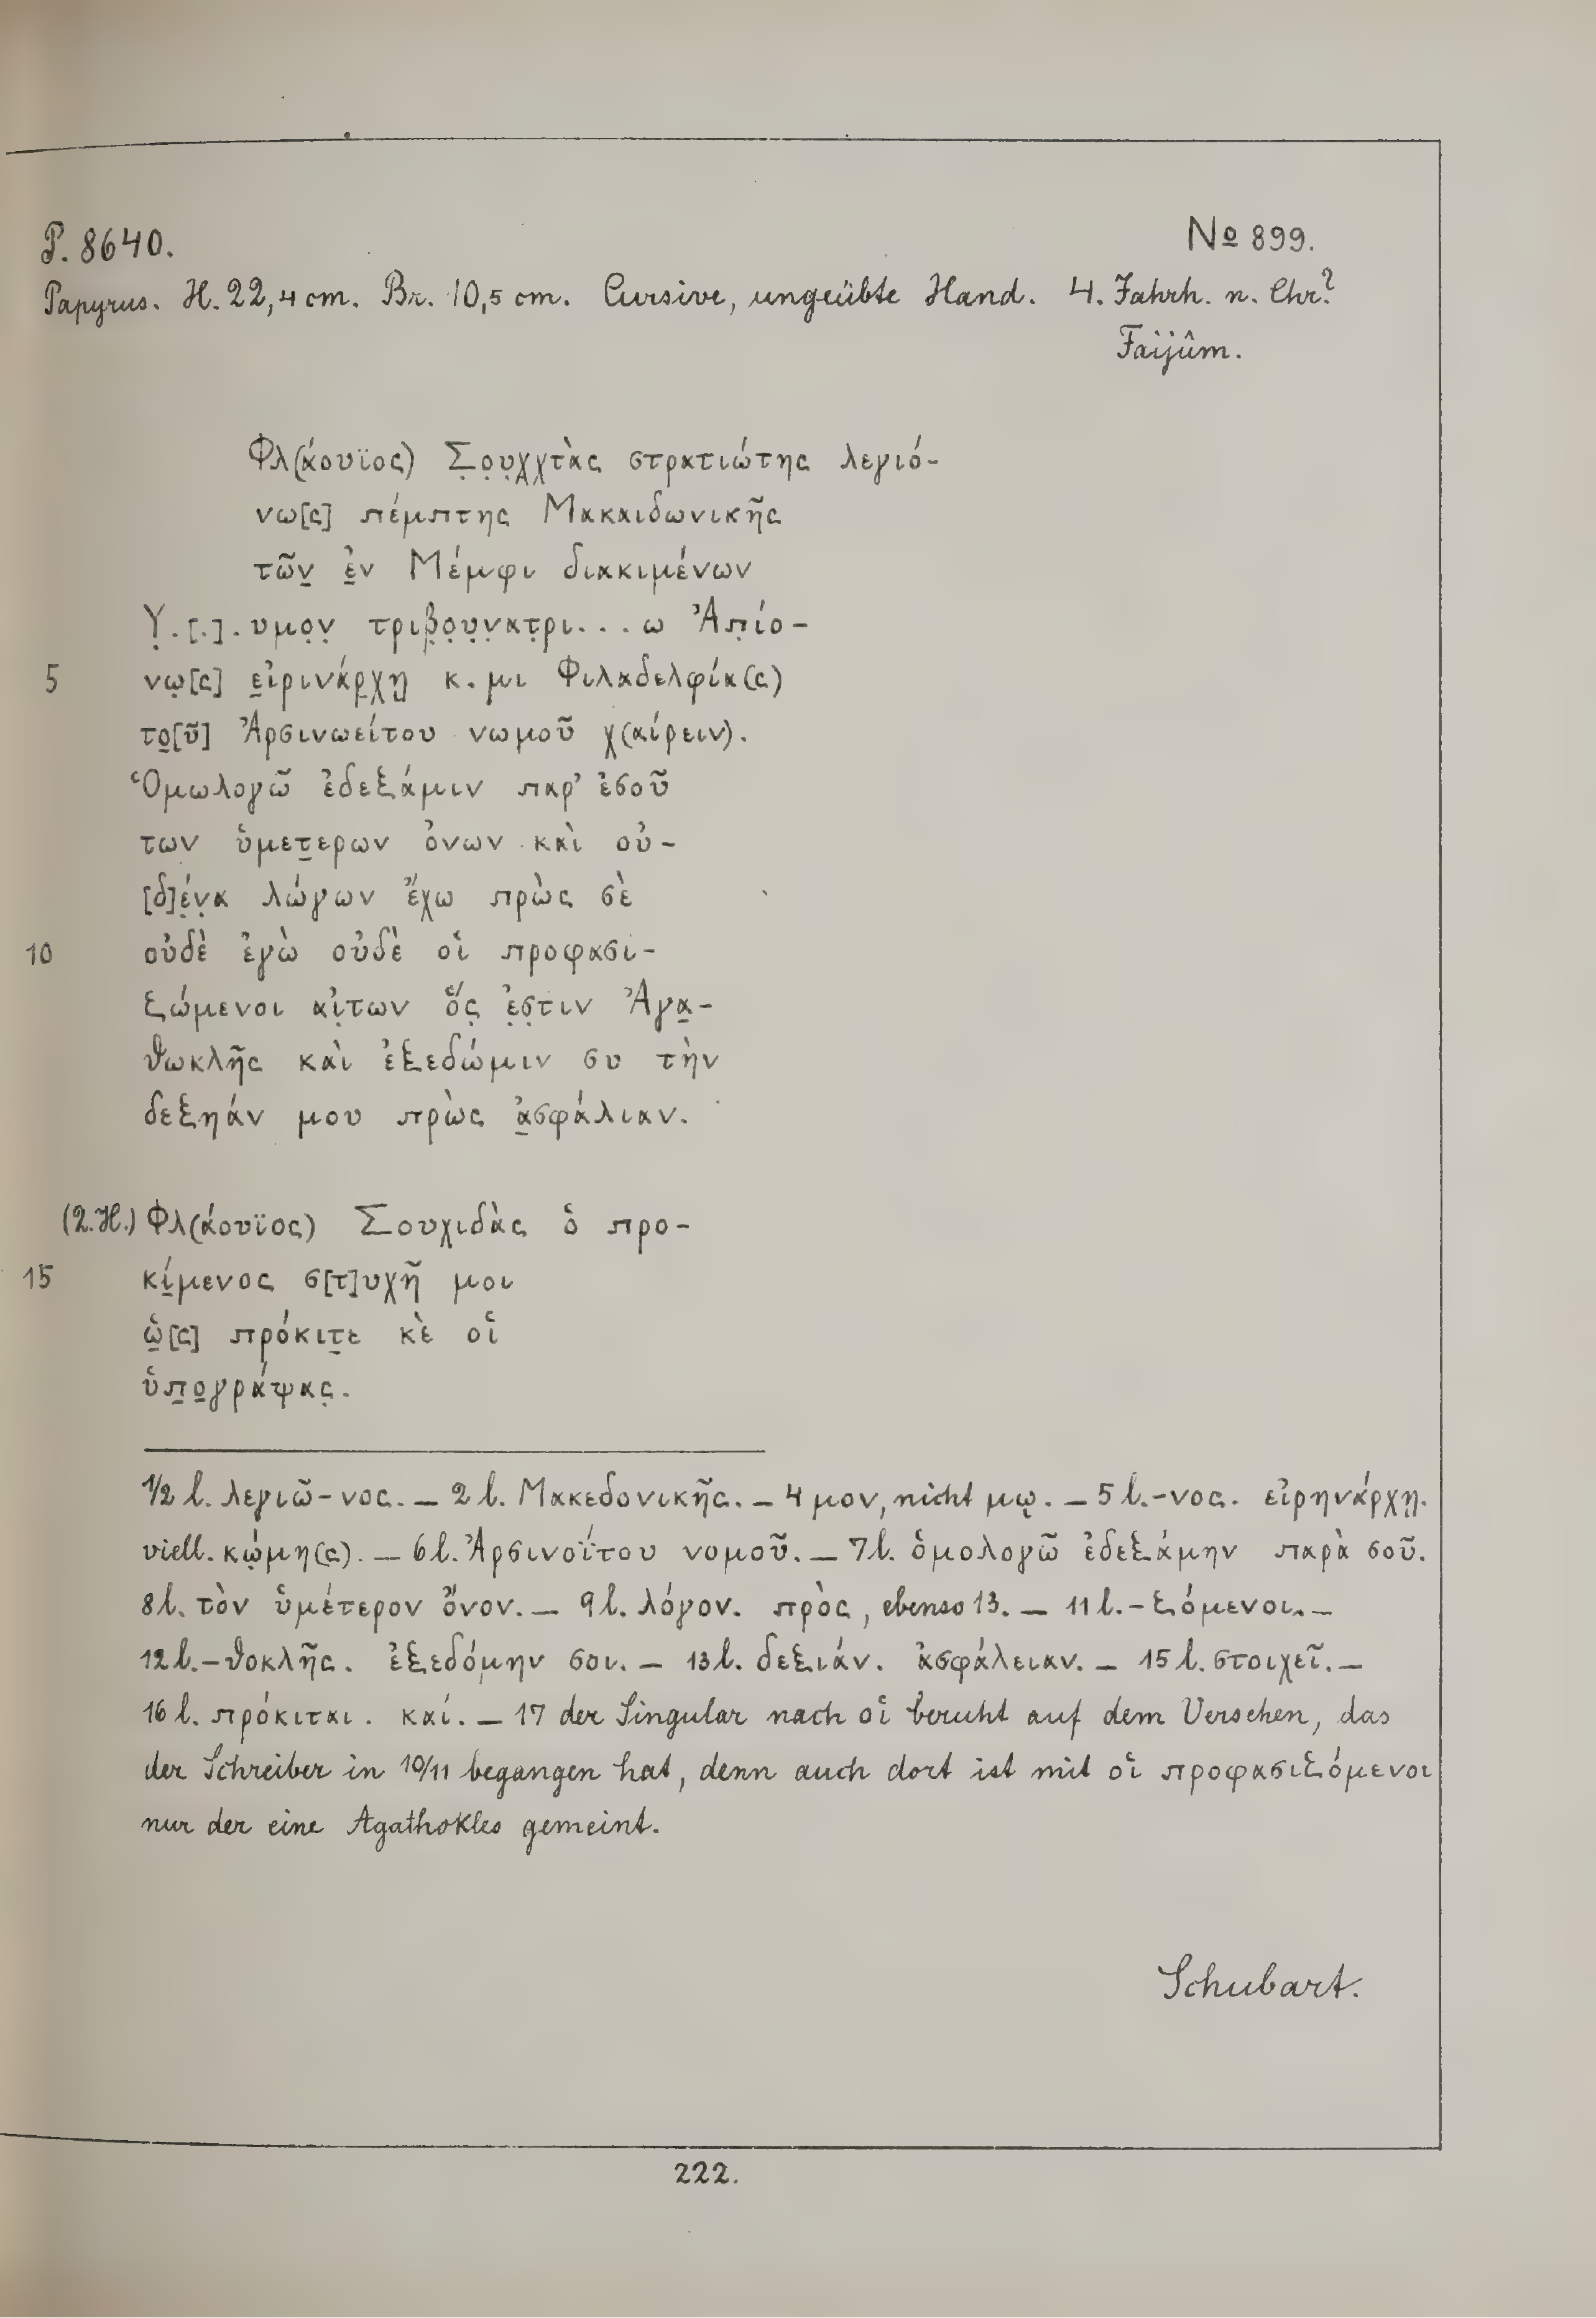 P. 8640. No 899.
Papyrus. H. 22,4 cm. Br. 10,5 cm. Cursive, ungeübte Hand. 4. Jahrh. n. Chr.?
Faijûm.
Φλ(άουϊος) Σ̣ο̣υ̣χχτὰς στρατιώτης λεγιό-
νω[ς] πέμπτης Μακαιδωνικῆς
τῶν̣ ἐ̣ν Μέμφι διακιμένων
Υ̣.[.].υμο̣ν̣ τριβ̣ο̣υ̣ν̣ατ̣ρι...ω Ἀπ̣ίο-
5 νω̣[ς] ε̣ἰρινάρ̣χῃ̣ κ.μι Φιλαδελφία(ς)
το̣[ῦ] Ἀρσινωείτου νωμοῦ χ(αίρειν).
Ὁμωλογῶ ἐδεξάμιν παρ' ἐσοῦ
των ὑμετ̣ερων ὀνων καὶ οὐ-
[δ]έ̣ν̣α λώγων ἔχω πρὼς σὲ
10 οὐδὲ ἐγὼ οὐδὲ οἱ προφασι-
ξώμενοι αἰ̣των ὅς̣ ἐ̣σ̣τιν Ἀγα̣-
θωκλῆς καὶ ἐξεδώμιν συ τὴν
δεξηάν μου πρὼς ἀ̣σφάλιαν.
(2.H.) Φλ(άουϊος) Σουχιδὰς ὁ προ-
15 κί̣μενος σ[τ]υχῆ μοι
ὡ̣[ς] πρόκιτ̣ε κὲ οἱ
ὑπ̣ο̣γράψας̣.
1/2 l. λεγιῶ-νος. — 2 l. Μακεδονικῆς. — 4 μον, nicht μῳ. — 5 l. -νος. εἰρηνάρχῃ.
viell. κώ̣μη(ς). — 6 l. Ἀρσινοΐτου νομοῦ. — 7 l. ὁμολογῶ ἐδεξάμην παρὰ σοῦ.
8 l. τὸν ὑμέτερον ὄνον. — 9 l. λόγον. πρὸς, ebenso 13. — 11 l. -ξόμενοι. —
12 l. -θοκλῆς. ἐξεδόμην σοι. — 13 l. δεξιάν. ἀσφάλειαν. — 15 l. στοιχεῖ. —
16 l. πρόκιται. καί. — 17 der Singular nach οἱ beruht auf dem Versehen, das
der Schreiber in 10/11 begangen hat, denn auch dort ist mit οἱ προφασιξόμενοι
nur der eine Agathokles gemeint.
Schubart.
222.